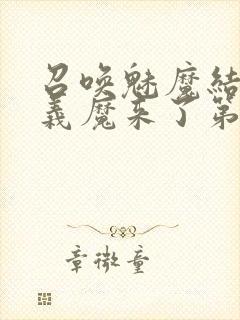 召唤魅魔结
义魔来了第
章微童